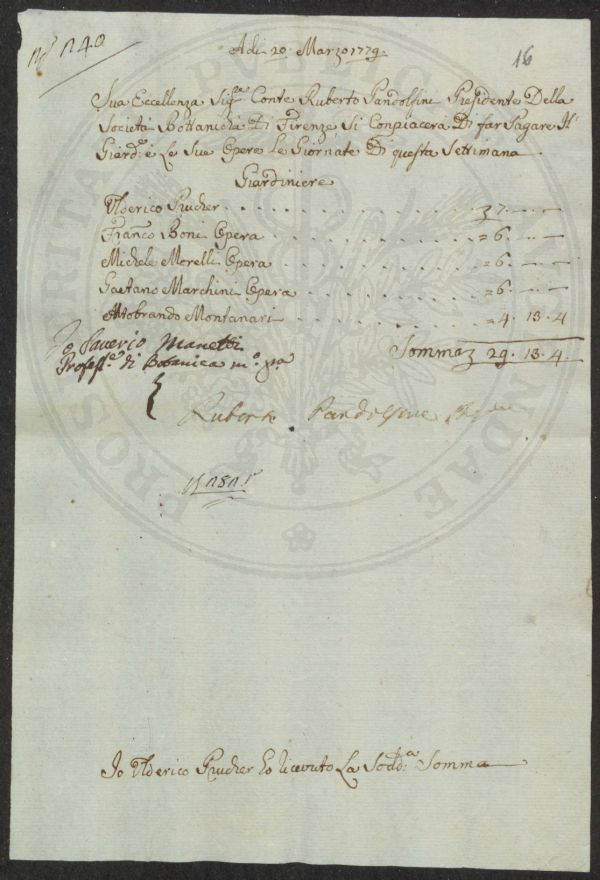 N.º 240
16
Adi 20. Marzo 1779.
Sua Eccellenza Sigr. Conte Ruberto Pandolfini Presidente Della
Società Bottanicha Di Firenze Si Conpiacerà Di far Pagare Il
Giardre. e Le Sua Opere Le Giornate Di questa Settimana
Giardiniere
Ulderico Prucher . . . . . . . . . . . . . 7. — —
Franco Boni Opera . . . . . . . . . . . = 6. — —
Michele Morelli Opera . . . . . . . . . = 6. — —
Gaetano Marchini Opera . . . . . . . . = 6. — —
Aldobrando Montanari . . . . . . . . . = 4. 13. 4
Somma 29. 13. 4.
Io Saverio Manetti
Profess.e di Botanica m.º pa
Ruberto Pandolfini
Io Ulderico Prucher ho ricevuto La Sodd.a Somma
PROSPERITATI PUBLICAE AUGENDAE